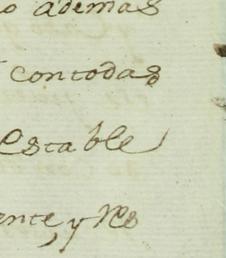 o ademas
contodas
estable
ente, y